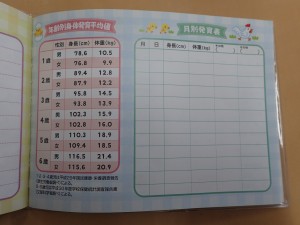 年齢別身体発育平均値
性別 身長(cm) 体重(kg)
1歳 男 78.6 10.5
女 76.8 9.9
2歳 男 89.4 12.8
女 87.9 12.2
3歳 男 95.8 14.5
女 93.8 13.9
4歳 男 102.3 15.9
女 102.8 16.0
5歳 男 110.3 18.9
女 109.4 18.5
6歳 男 116.5 21.4
女 115.6 20.9
月別発育表
月 日 身長(cm) 体重(kg) 月 日 身長(cm) 体重(kg)